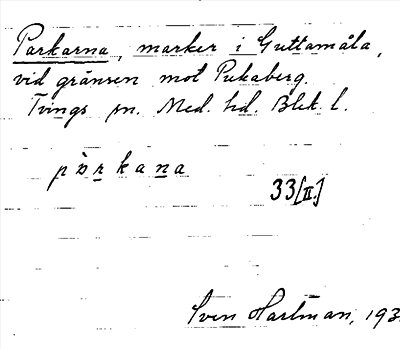 Parkarna, marker i Guttamåla,
vid gränsen mot Pukaberg.
Tvings sn. Med. hd. Blek. l.
pàrkana
33[II.]
Sven Hartman, 193